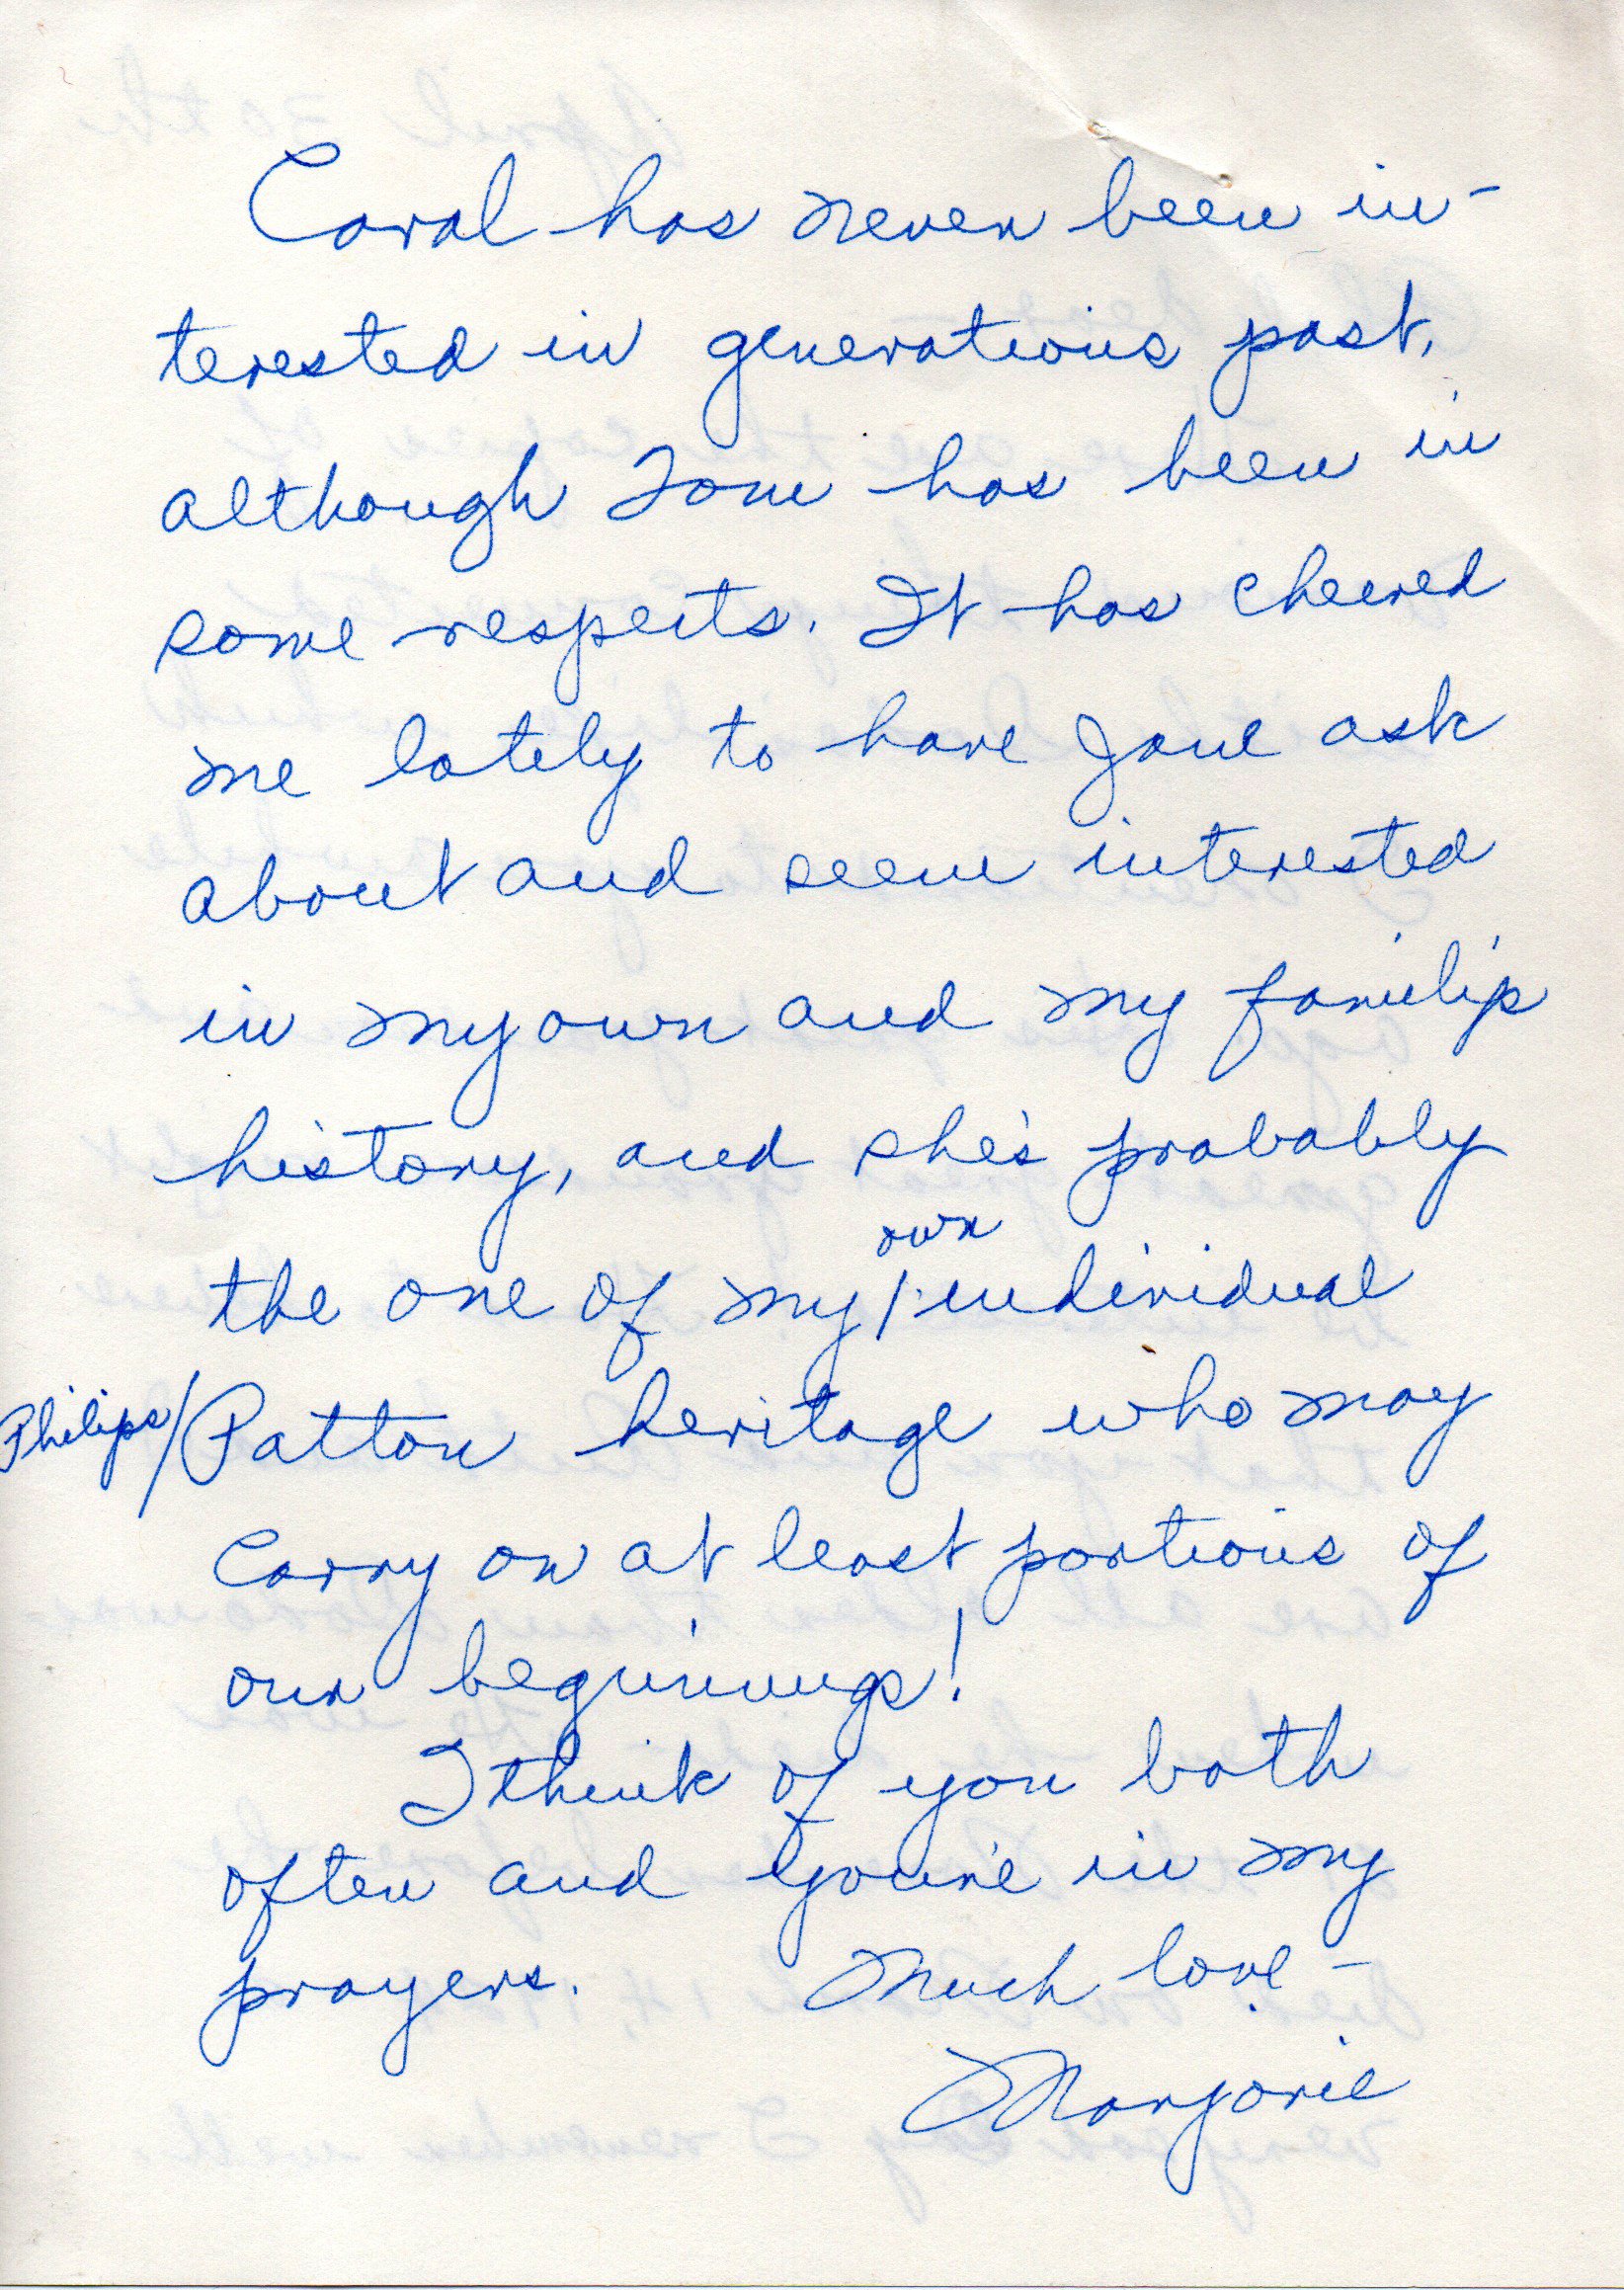 Carol has never been in-
terested in generations past,
although Tom has been in
some respects. It has cheered
me lately to have Jane ask
about and seem interested
in my own and my family's
history, and she's probably
the one of my own individual
Philips/Patton heritage who may
carry on at least portions of
our beginnings!
I think of you both
often and you're in my
prayers. Much love -
Marjorie